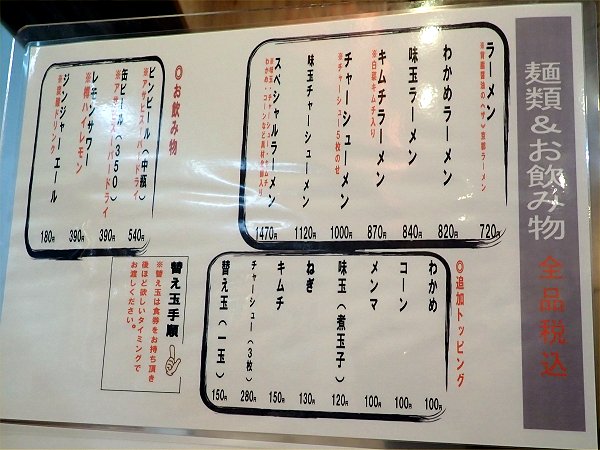 麺類&お飲み物 全品税込
ラーメン 720円
※背脂醤油の《ザ》京都ラーメン
わかめラーメン 820円
味玉ラーメン 840円
キムチラーメン 870円
※白菜キムチ入り
チャーシューメン 1000円
※チャーシュー5枚のせ
味玉チャーシューメン 1120円
スペシャルラーメン 1470円
※味玉・チャーシュー・キムチ
わかめ・コーンなど具材全部入り
◎お飲み物
ビンビール(中瓶) 540円
※アサヒスーパードライ
缶ビール(350) 390円
※アサヒスーパードライ
レモンサワー 390円
※樽ハイレモン
ジンジャーエール 180円
※炭酸ドリンク
◎追加トッピング
わかめ 100円
コーン 100円
メンマ 100円
味玉(煮玉子) 120円
ねぎ 130円
キムチ 150円
チャーシュー(3枚) 280円
替え玉(一玉) 150円
替え玉手順
※替え玉は食券をお持ち頂き
後ほど欲しいタイミングで
お渡しください。